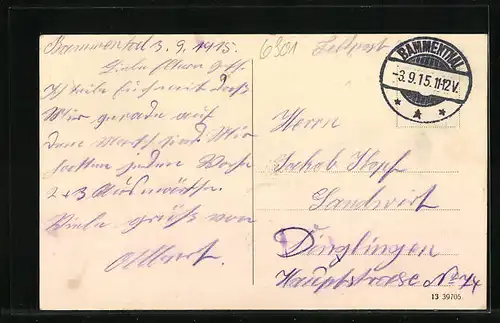 Bammental 3. 9. 1915.
Liebe Eltern
Ich teile Euch mit daß
Wir gerade auf
dem Marsch sind. Wir
haben jeden Woche
2 + 3 Ausmärsche.
Viele grüß von
Albert
6301 Feldpost
BAMMENTHAL
-3.9.15.11-12V.
Herrn
Jakob Hopf
Landwirt
Dinglingen
Hauptstrasse No 74
13 39705